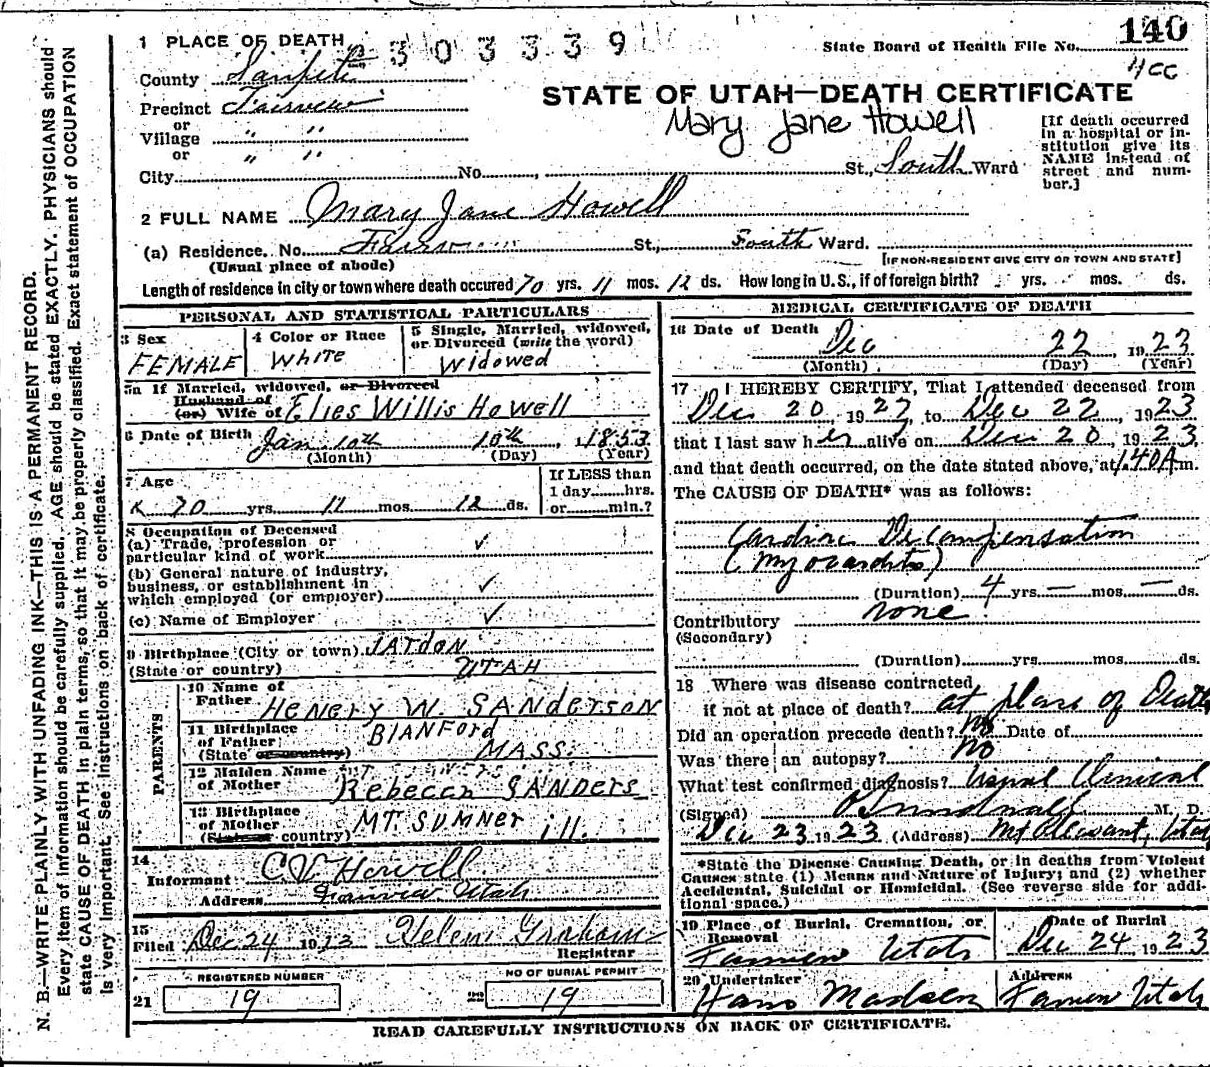 140
1 PLACE OF DEATH 2303339 State Board of Health File No.
4CC
County Sanpete
STATE OF UTAH—DEATH CERTIFICATE
Precinct Fairview
Mary Jane Howell
or
Village " "
or " "
City No. St., South Ward
[If death occurred
in a hospital or in-
stitution give its
NAME instead of
street and num-
ber.]
2 FULL NAME Mary Jane Howell
(a) Residence. No. Fairview St., South Ward.
(Usual place of abode) [IF NON-RESIDENT GIVE CITY OR TOWN AND STATE]
Length of residence in city or town where death occured 70 yrs. 11 mos. 12 ds. How long in U.S., if of foreign birth? yrs. mos. ds.
PERSONAL AND STATISTICAL PARTICULARS
3 Sex
FEMALE
4 Color or Race
White
5 Single, Married, widowed,
or Divorced (write the word)
Widowed
5a If Married, widowed, or Divorced
Husband of
(or) Wife of Elies Willis Howell
6 Date of Birth Jan 10th 10th, 1853
(Month) (Day) (Year)
7 Age
70 yrs 11 mos. 12 ds.
If LESS than
1 day hrs.
or min.?
8 Occupation of Deceased
(a) Trade, profession or
particular kind of work ✓
(b) General nature of industry,
business, or establishment in
which employed (or employer) ✓
(c) Name of Employer ✓
9 Birthplace (City or town) JARDON
(State or country) UTAH
PARENTS
10 Name of
Father HENERY W. SANDERSON
11 Birthplace
of Father BLANFORD
(State or country) MASS.
12 Maiden Name
of Mother Rebecca SANDERS
13 Birthplace
of Mother MT. SUMNER
(State or country) ill.
14
Informant C V Howell
Address Fairview Utah
15
Filed Dec 24 1912 Helen Graham
Registrar
REGISTERED NUMBER
21 19
NO OF BURIAL PERMIT
22 19
MEDICAL CERTIFICATE OF DEATH
16 Date of Death Dec 22, 1923
(Month) (Day) (Year)
17 I HEREBY CERTIFY, That I attended deceased from
Dec 20 1923, to Dec 22, 1923
that I last saw her alive on Dec 20, 1923
and that death occurred, on the date stated above, at 1.40 A m.
The CAUSE OF DEATH* was as follows:
Cardiac Decompensation
(Myocarditis)
(Duration) 4 yrs. — mos. — ds.
Contributory none
(Secondary)
(Duration) yrs. mos. ds.
18 Where was disease contracted
if not at place of death? at place of Death
Did an operation precede death? No Date of
Was there an autopsy? No
What test confirmed diagnosis? Usual Clinical
(Signed) Sundwall M. D.
Dec 23, 1923 (Address) Mt Pleasant, Utah
*State the Disease Causing Death, or in deaths from Violent
Causes state (1) Means and Nature of Injury; and (2) whether
Accidental, Suicidal or Homicidal. (See reverse side for addi-
tional space.)
19 Place of Burial, Cremation, or
Removal
Fairview Utah
Date of Burial
Dec 24 1923
20 Undertaker
Hans Madsen
Address
Fairview Utah
READ CAREFULLY INSTRUCTIONS ON BACK OF CERTIFICATE.
N. B.—WRITE PLAINLY WITH UNFADING INK—THIS IS A PERMANENT RECORD.
Every item of information should be carefully supplied. AGE should be stated EXACTLY. PHYSICIANS should
state CAUSE OF DEATH in plain terms, so that it may be properly classified. Exact statement of OCCUPATION
is very important. See instructions on back of certificate.